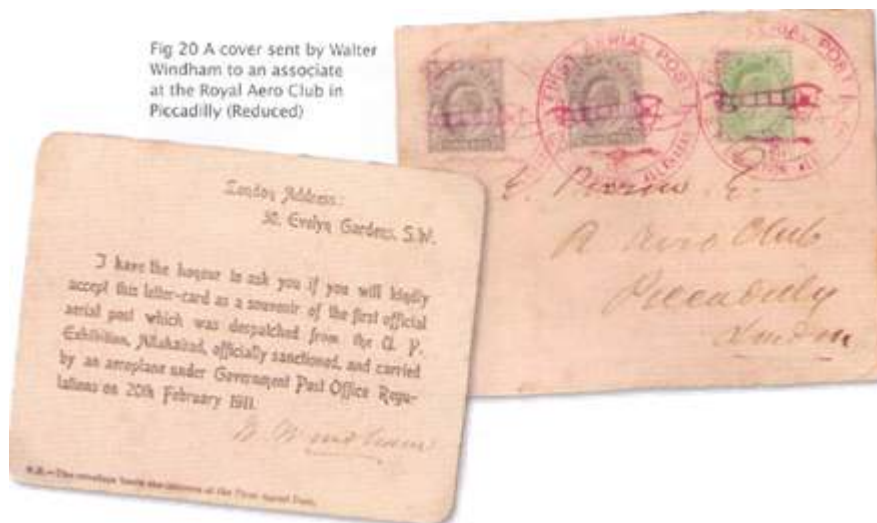 Fig 20 A cover sent by Walter
Windham to an associate
at the Royal Aero Club in
Piccadilly (Reduced)
FIRST AERIAL POST
AERIAL POST
London Address:
Evelyn Gardens, S.W.
I have the honour to ask you if you will kindly
accept this letter-card as a souvenir of the first official
aerial post which was despatched from the U. P.
Exhibition, Allahabad, officially sanctioned, and carried
by an aeroplane under Government Post Office Regu-
lations on 20th February 1911.
W. Windham
N.B.—The envelope bears the of the First Aerial Post.
E.
R Aero Club
Piccadilly
London